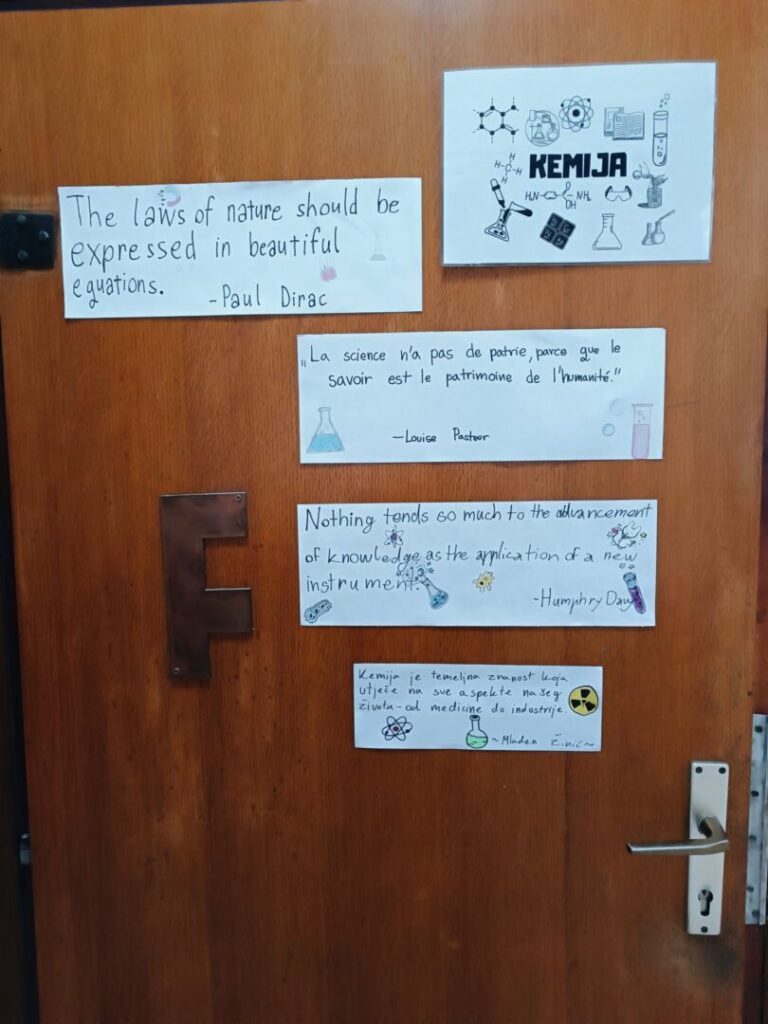 KEMIJA
H
H
H
H
H₂N
NH₂
OH
The laws of nature should be
expressed in beautiful
equations.
-Paul Dirac
„La science n'a pas de patrie, parce que le
savoir est le patrimoine de l'humanité."
-Louise Pasteur
F
Nothing tends so much to the advancement
of knowledge as the application of a new
instrument.
-Humphry Davy
Kemija je temeljna znanost koja
utječe na sve aspekte našeg
života-od medicine do industrije.
~Mladen Žinić~